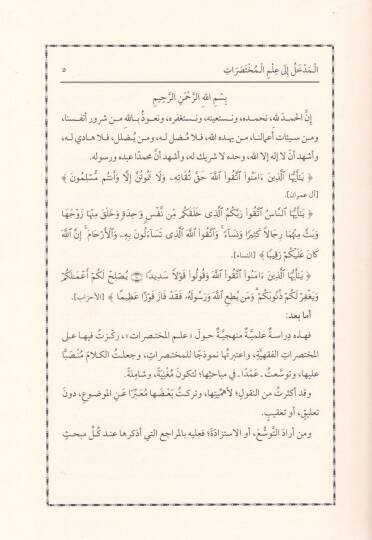 المَدْخَلُ إِلَى عِلْمِ المُخْتَصَرَاتِ ٥
بِسْمِ اللهِ الرَّحْمَنِ الرَّحِيمِ
إنَّ الحمدَ لله، نحمده، ونستعينه، ونستغفره، ونعوذُ باللهِ من شرور أنفسنا،
ومن سيئات أعمالنا، من يهده الله، فلا مُضل له، ومن يُضلل، فلا هادي له،
وأشهد أنْ لا إله إلا الله، وحده لا شريك له، وأشهد أنَّ محمدًا عبده ورسوله.
﴿ يَٰٓأَيُّهَا ٱلَّذِينَ ءَامَنُوا۟ ٱتَّقُوا۟ ٱللَّهَ حَقَّ تُقَاتِهِۦ وَلَا تَمُوتُنَّ إِلَّا وَأَنتُم مُّسْلِمُونَ ﴾
[آل عمران].
﴿ يَٰٓأَيُّهَا ٱلنَّاسُ ٱتَّقُوا۟ رَبَّكُمُ ٱلَّذِى خَلَقَكُم مِّن نَّفْسٍ وَٰحِدَةٍ وَخَلَقَ مِنْهَا زَوْجَهَا
وَبَثَّ مِنْهُمَا رِجَالًا كَثِيرًا وَنِسَآءً ۚ وَٱتَّقُوا۟ ٱللَّهَ ٱلَّذِى تَسَآءَلُونَ بِهِۦ وَٱلْأَرْحَامَ ۚ إِنَّ ٱللَّهَ
كَانَ عَلَيْكُمْ رَقِيبًا ﴾ [النساء].
﴿ يَٰٓأَيُّهَا ٱلَّذِينَ ءَامَنُوا۟ ٱتَّقُوا۟ ٱللَّهَ وَقُولُوا۟ قَوْلًا سَدِيدًا ۝ يُصْلِحْ لَكُمْ أَعْمَٰلَكُمْ
وَيَغْفِرْ لَكُمْ ذُنُوبَكُمْ ۗ وَمَن يُطِعِ ٱللَّهَ وَرَسُولَهُۥ فَقَدْ فَازَ فَوْزًا عَظِيمًا ﴾ [الأحزاب].
أما بعد:
فهذه دراسةٌ علميَّةٌ منهجيَّةٌ حولَ «علم المختصرات»، ركَّزتُ فيها على
المختصراتِ الفقهيَّةِ، واعتبرتُها نموذجًا للمختصراتِ، وجعلتُ الكلامَ مُنْصَبًّا
عليها، وتوسَّعتُ ـ عَمْدًا ـ في مباحثِها؛ لتكونَ مُغْنِيَةً، وشاملةً.
وقد أكثرتُ من النقولِ؛ لأهمِّيتِها، وتركتُ بَعْضَها مُعَبِّرًا عَنِ الموضوعِ، دونَ
تعليقٍ، أو تعقيبٍ.
ومن أرادَ التَّوسُّعَ، أو الاستزادةَ؛ فعليه بالمراجع التي أذكرها عند كُلِّ مبحثٍ